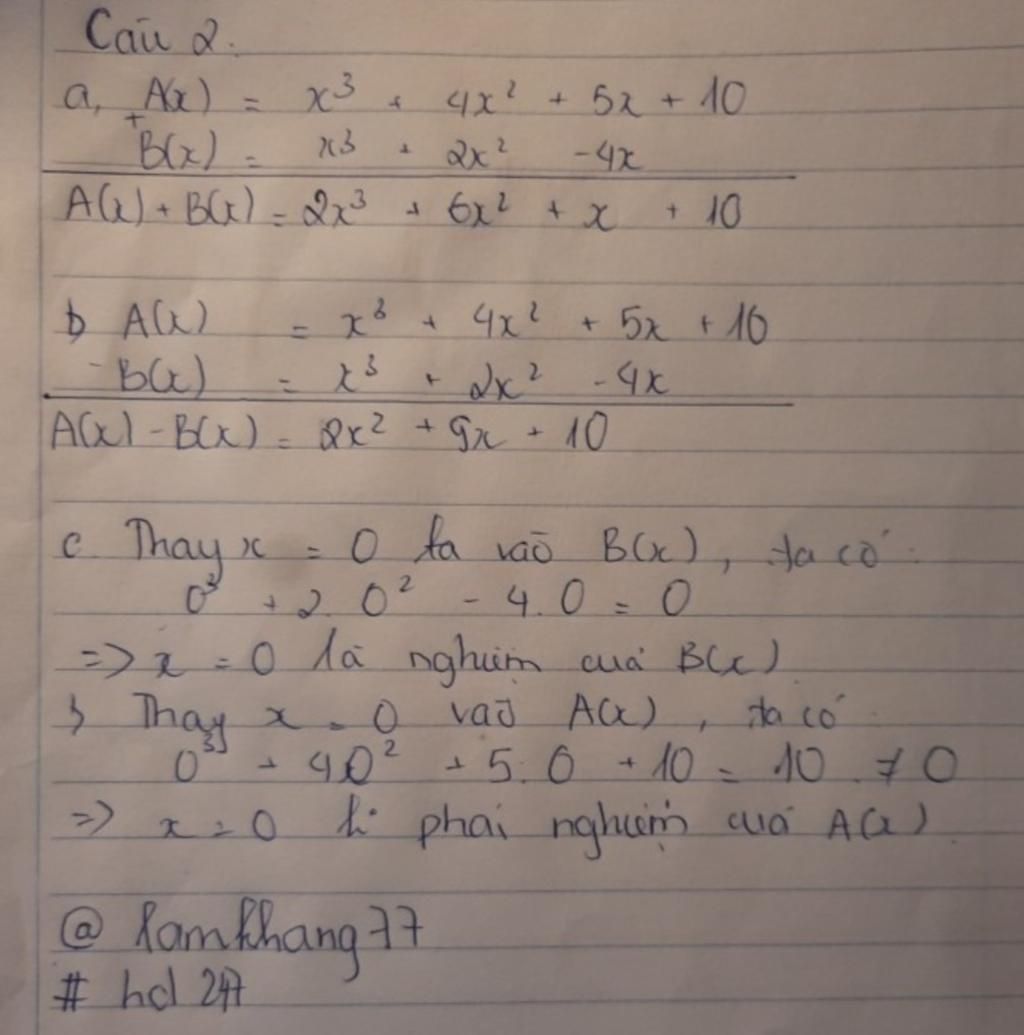 Câu 2.
a, A(x) = x³ + 4x² + 5x + 10
+ B(x) = x³ + 2x² - 4x
A(x) + B(x) = 2x³ + 6x² + x + 10
b A(x) = x³ + 4x² + 5x + 10
- B(x) = x³ + 2x² - 4x
A(x) - B(x) = 2x² + 9x + 10
c. Thay x = 0 ta vào B(x), ta có:
0³ + 2.0² - 4.0 = 0
=> x = 0 là nghiệm của B(x)
Thay x = 0 vào A(x), ta có
0³ + 40² + 5.0 + 10 = 10 ≠ 0
=> x = 0 k phải nghiệm của A(x)
@ lamkhang77
# hd 247